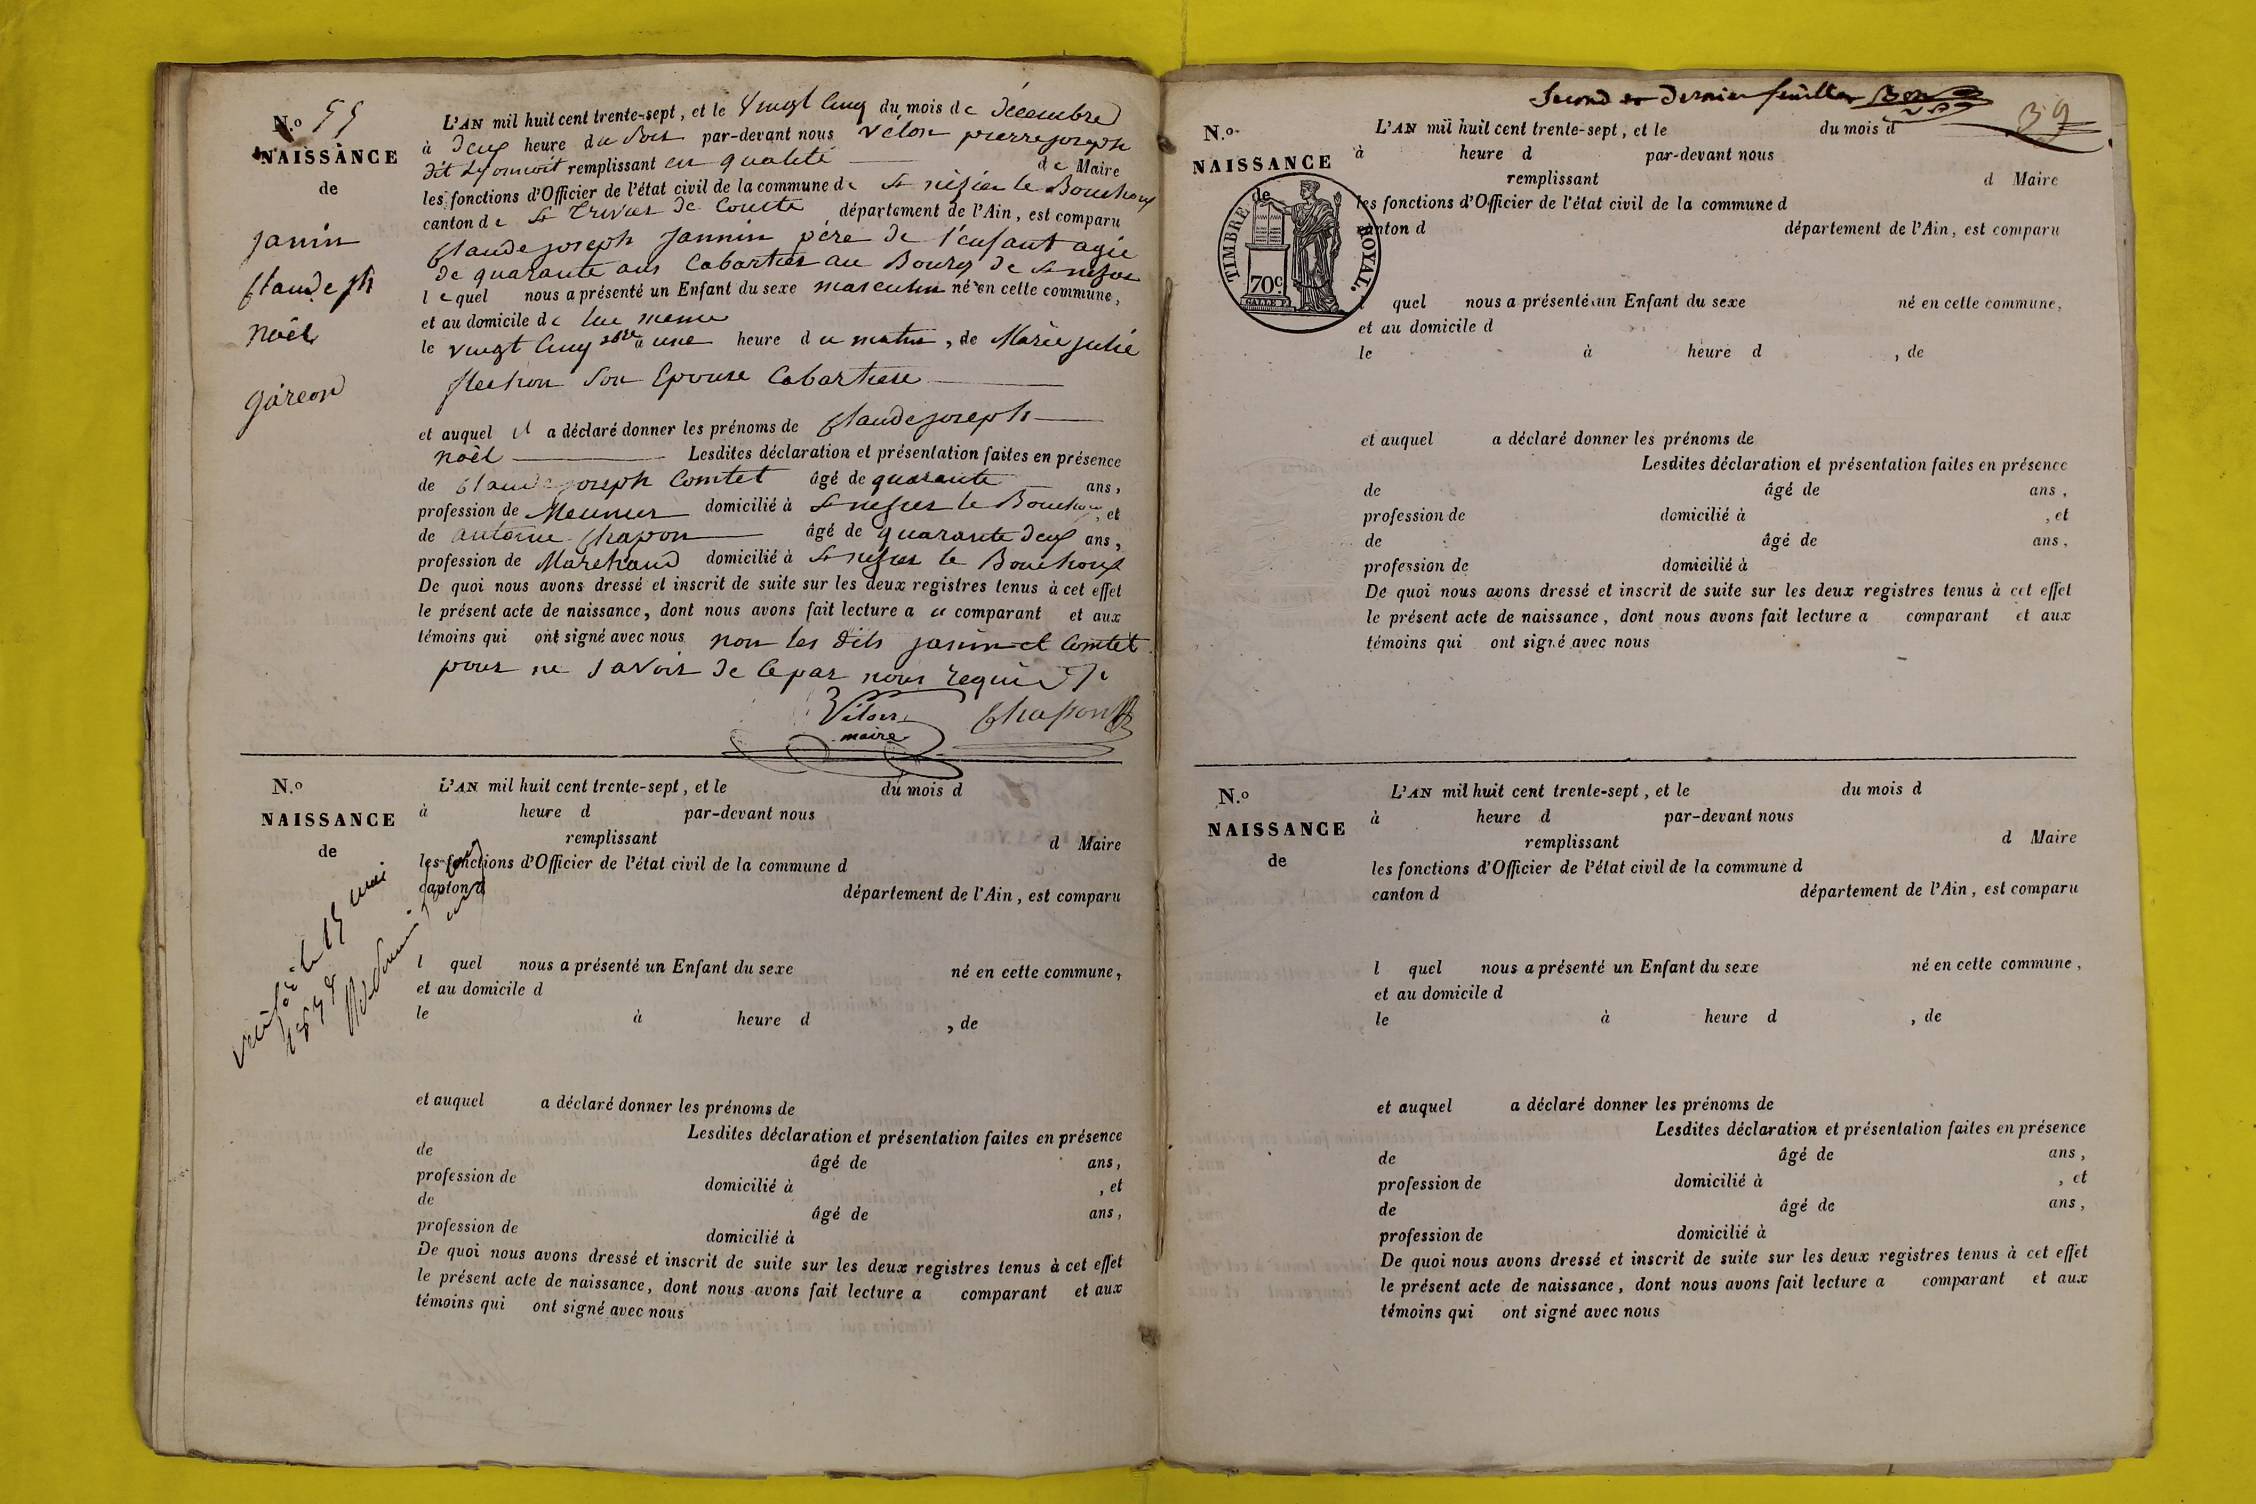 N.o 55
NAISSANCE
de
janin
Claude jh
noël
garcon
L'AN mil huit cent trente-sept, et le vingt cinq du mois de décembre
à deux heure du soir par-devant nous Vélon pierre joseph
dit remplissant en qualité de Maire
les fonctions d'Officier de l'état civil de la commune de St nisier le Bouchoux
canton de St Trivier de Courte département de l'Ain, est comparu
Claude joseph Jannin pére de l'enfant agé
de quarante ans Cabartier au Bourg de St nisier
lequel nous a présenté un Enfant du sexe masculin né en cette commune,
et au domicile de lui meme
le vingt cinq à une heure du matin, de Marie julie
son Epouse Cabartiere
et auquel il a déclaré donner les prénoms de Claude joseph
noël Lesdites déclaration et présentation faites en présence
de Claude joseph Comtet âgé de quarante ans,
profession de Meunier domicilié à St nisier le Bouchoux, et
de antoine Chapon âgé de quarante deux ans,
profession de Marchand domicilié à St nisier le Bouchoux
De quoi nous avons dressé et inscrit de suite sur les deux registres tenus à cet effet
le présent acte de naissance, dont nous avons fait lecture a u comparant et aux
témoins qui ont signé avec nous non les dits janin et Comtet
pour ne savoir de ce par nous requis
Vélon
maire
Chapon
N.o
NAISSANCE
de
L'AN mil huit cent trente-sept, et le du mois d
à heure d par-devant nous
remplissant d Maire
les fonctions d'Officier de l'état civil de la commune d
canton d
département de l'Ain, est comparu
l quel nous a présenté un Enfant du sexe né en cette commune,
et au domicile d
le à heure d , de
et auquel a déclaré donner les prénoms de
Lesdites déclaration et présentation faites en présence
de âgé de ans,
profession de domicilié à , et
de âgé de ans,
profession de domicilié à
De quoi nous avons dressé et inscrit de suite sur les deux registres tenus à cet effet
le présent acte de naissance, dont nous avons fait lecture a comparant et aux
témoins qui ont signé avec nous
vérifié le 15 mai
Second et dernier feuillet
39
N.o
NAISSANCE
de
TIMBRE ROYAL.
70c.
L'AN mil huit cent trente-sept, et le du mois d
à heure d par-devant nous
remplissant d Maire
les fonctions d'Officier de l'état civil de la commune d
canton d département de l'Ain, est comparu
l quel nous a présenté un Enfant du sexe né en cette commune,
et au domicile d
le à heure d , de
et auquel a déclaré donner les prénoms de
Lesdites déclaration et présentation faites en présence
de âgé de ans,
profession de domicilié à , et
de âgé de ans,
profession de domicilié à
De quoi nous avons dressé et inscrit de suite sur les deux registres tenus à cet effet
le présent acte de naissance, dont nous avons fait lecture a comparant et aux
témoins qui ont signé avec nous
N.o
NAISSANCE
de
L'AN mil huit cent trente-sept, et le du mois d
à heure d par-devant nous
remplissant d Maire
les fonctions d'Officier de l'état civil de la commune d
canton d département de l'Ain, est comparu
l quel nous a présenté un Enfant du sexe né en cette commune,
et au domicile d
le à heure d , de
et auquel a déclaré donner les prénoms de
Lesdites déclaration et présentation faites en présence
de âgé de ans,
profession de domicilié à , et
de âgé de ans,
profession de domicilié à
De quoi nous avons dressé et inscrit de suite sur les deux registres tenus à cet effet
le présent acte de naissance, dont nous avons fait lecture a comparant et aux
témoins qui ont signé avec nous